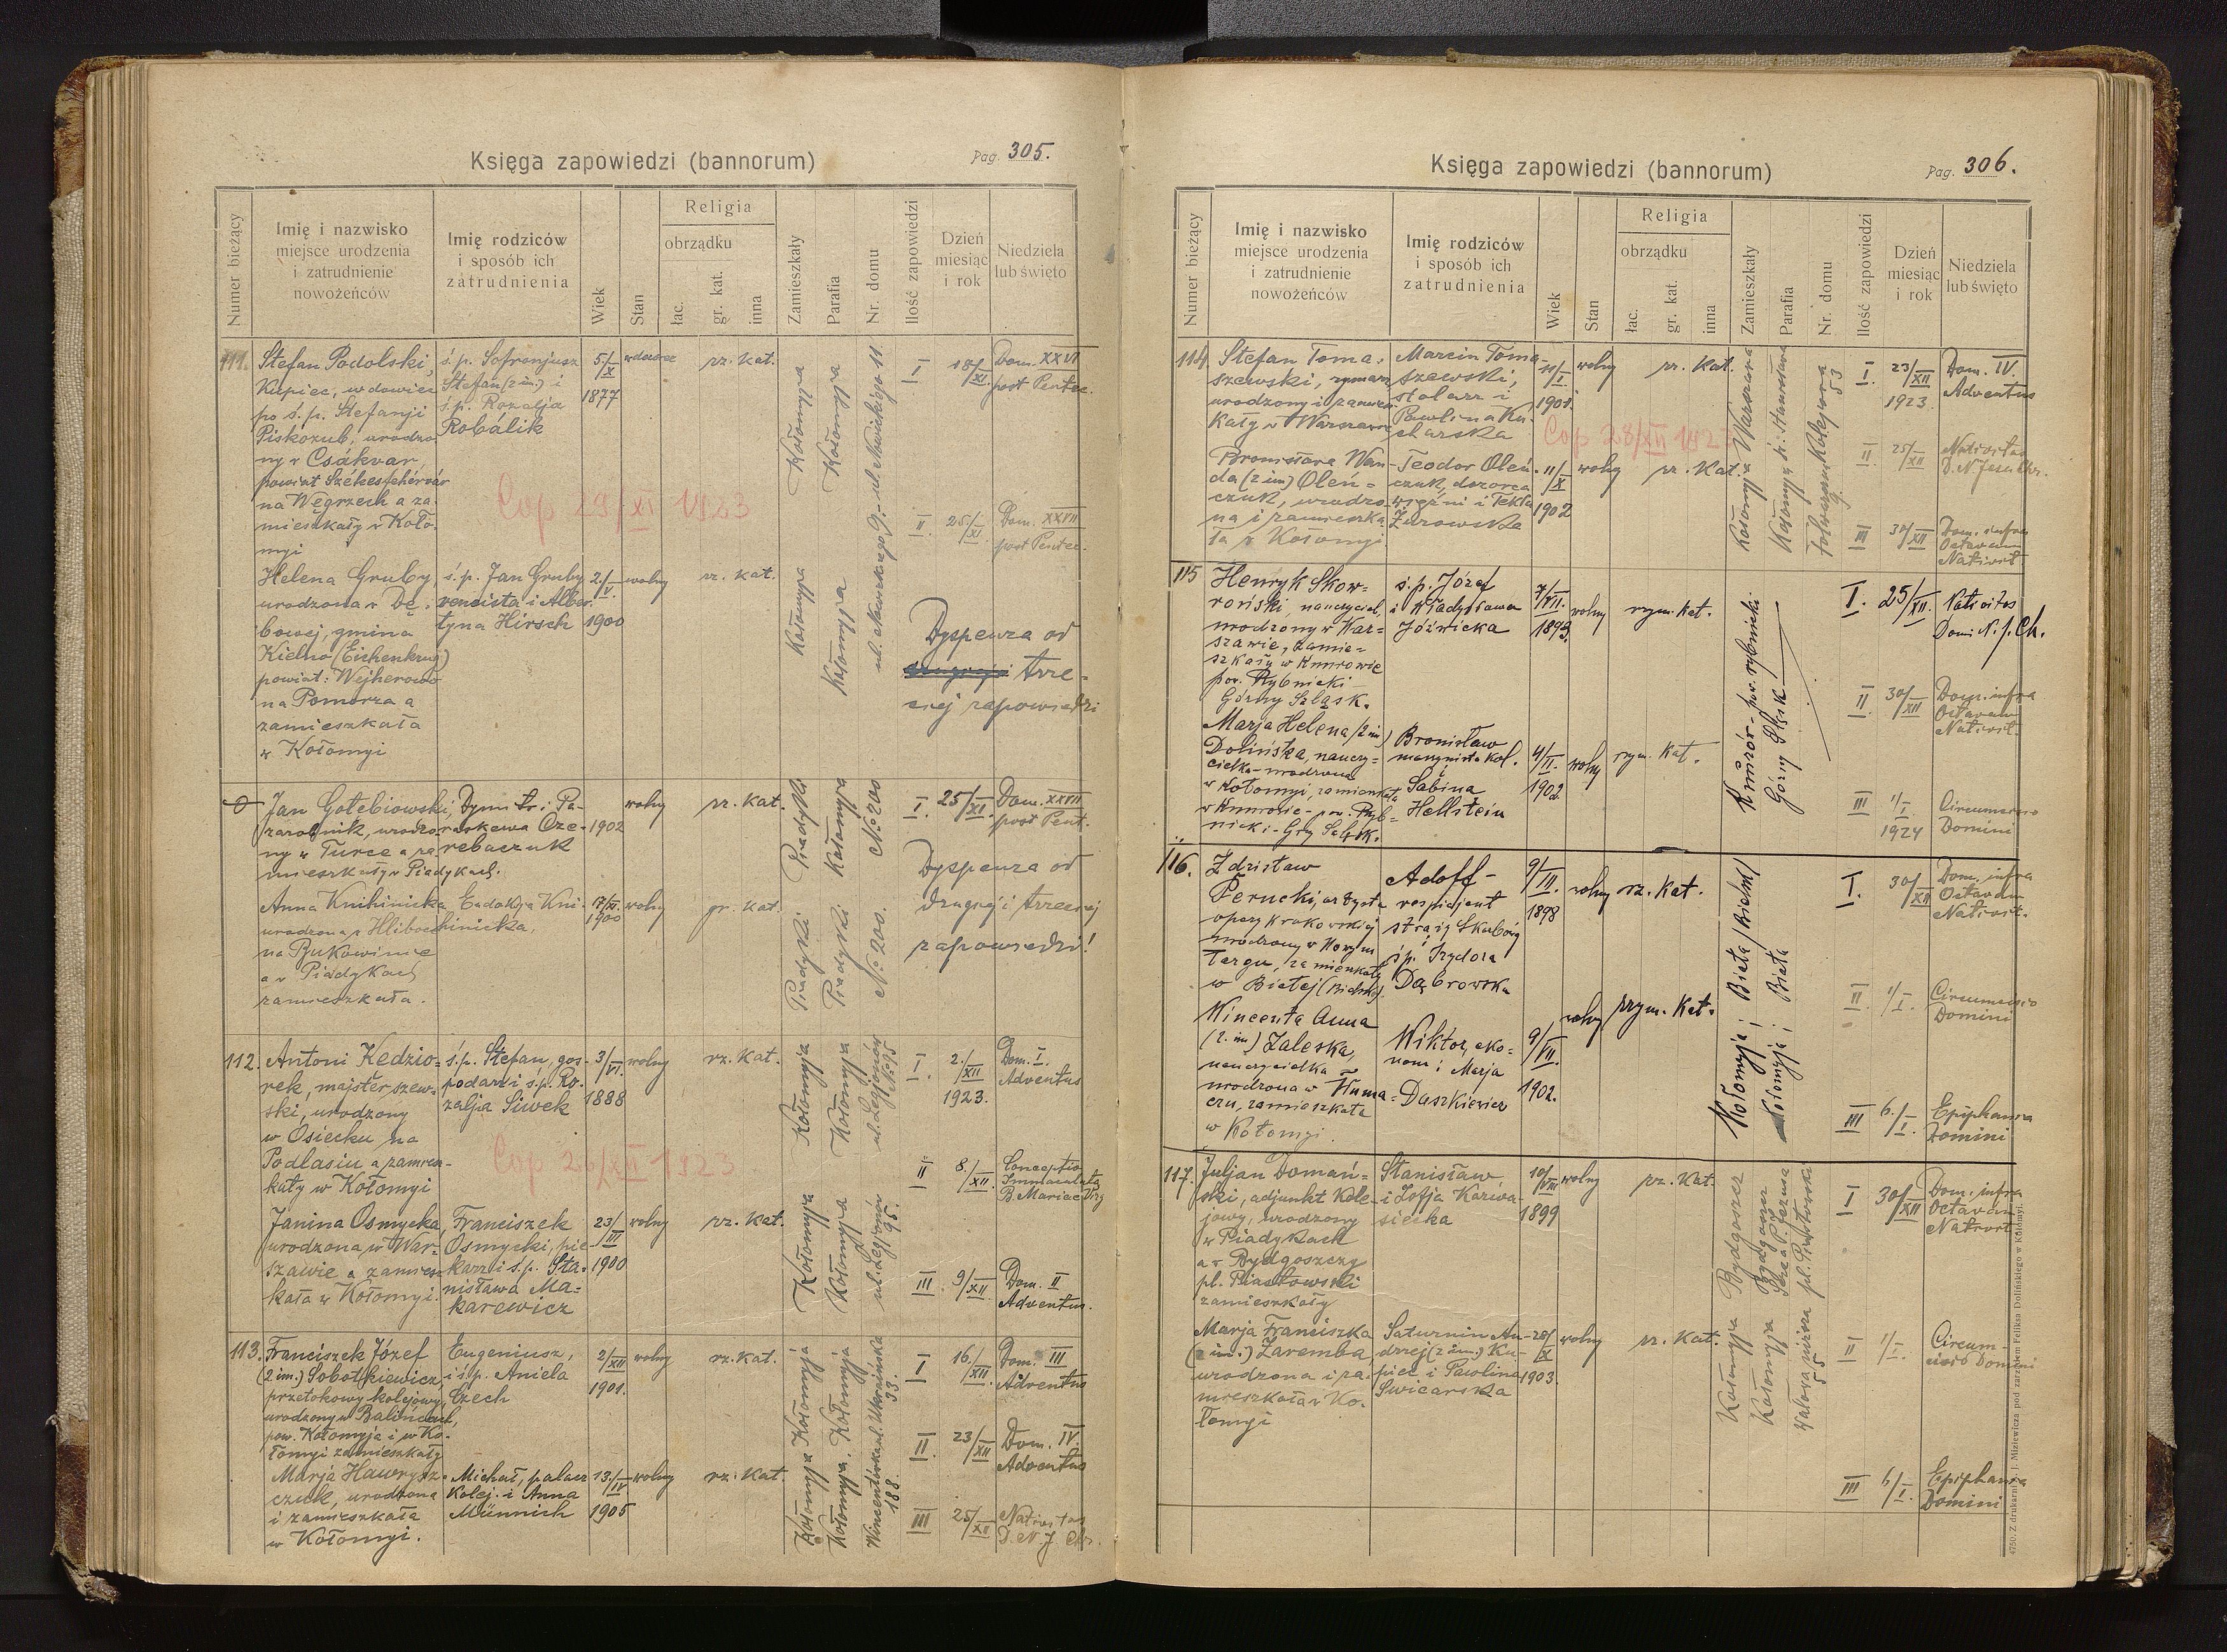 Księga zapowiedzi (bannorum)
Pag. 305.
Numer bieżący
Imię i nazwisko
miejsce urodzenia
i zatrudnienie
nowożeńców
Imię rodziców
i sposób ich
zatrudnienia
Wiek
Stan
Religia
obrządku
łac.
gr. kat.
inna
Zamieszkały
Parafia
Nr. domu
Ilość zapowiedzi
Dzień
miesiąc
i rok
Niedziela
lub święto
111.
Stefan Podolski,
Kupiec, wdowiec
po ś.p. Stefanji
Piskozub, urodzo-
ny w Csákvar,
powiat Székesfehérvár
na Węgrzech a za-
mieszkały w Koło-
myi
ś.p. Sofronjusz
Stefan (2 im.) i
ś.p. Rozalja
Robálik
5/X
1877
wdowiec
rz. kat.
Kołomyja
Kołomyja
I
18/XI.
Dom. XXVI
post Pentec.
Cop 29/XI 1923
II
25/XI.
Dom. XXVII
post Pentec.
Helena Gruby,
urodzona w Dę-
bowej, gmina
Kielno (Eichenkrug)
powiat: Wejherowo
na Pomorzu a
zamieszkała
w Kołomyi
ś.p. Jan Gruby
rencista i Alber-
tyna Hirsch
2/V.
1900
wolny
rz. kat.
Kołomyja
Kołomyja
Dyspenza od
drugiej i trze-
ciej zapowiedzi
Jan Gołebiowski,
zarobnik, urodzo-
ny w Turce a za-
mieszkały w Piadykach.
Dymitr i Pa-
raskewa Oze-
rebaczuk
1902
wolny
rz. kat.
Piadyki
Kołomyja
No 200
I.
25/XI.
Dom. XXVII
post Pent.
Dyspenza od
drugiej i trzeciej
zapowiedzi!
Anna Knihinicka
urodzona w Hliboce
na Bukowinie
a w Piadykach
zamieszkała.
Eudokja Kni-
hinicka,
1900
wolny
gr. kat.
Piadyki
Piadyki
No 200.
112.
Antoni Kedzio-
rek, majster szew-
ski, urodzony
w Osiecku na
Podlasiu a zamiesz-
kały w Kołomyi
ś.p. Stefan, gos-
podarz i ś.p. Ro-
zalja Siwek
3/VI.
1888
wolny
rz. kat.
Kołomyja
Kołomyja
ul. Legjonów
No 95
I.
2/XII
1923.
Dom. I.
Adventus
Cop 26/XII 1923
II
8/XII.
Conceptio
Immaculata
B. Mariae Virg
Janina Osmycka,
urodzona w War-
szawie a zamiesz-
kała w Kołomyi.
Franciszek
Osmycki, pie-
karz i ś.p. Sta-
nisława Ma-
karewicz
23/III
1900
wolny
rz. kat.
Kołomyja
Kołomyja
ul. Legjonów
95.
III.
9/XII.
Dom. II
Adventus.
113.
Franciszek Józef
(2 im.) Sobotkiewicz,
przetokowy kolejowy,
urodzony w Balińcach,
pow. Kołomyja i w Ko-
łomyi zamieszkały
Eugeniusz,
i ś.p. Aniela
Czech
2/XII
1901.
wolny
rz. kat.
Kołomyja
Kołomyja
ul. Ukraińska
33.
I
16./XII.
Dom. III
Adventus
II.
23/XII
Dom. IV.
Adventus
Marja Hawrysz-
czuk, urodzona
i zamieszkała
w Kołomyi.
Michał, palacz
kolej. i Anna
Münnich
13./IV
1905
wolny
rz. kat.
Kołomyja
Kołomyja
Wincentówka
188.
III
25/XII
Nativitas
D. N. J. Chr.
Księga zapowiedzi (bannorum)
Pag. 306.
Numer bieżący
Imię i nazwisko
miejsce urodzenia
i zatrudnienie
nowożeńców
Imię rodziców
i sposób ich
zatrudnienia
Wiek
Stan
Religia
obrządku
łac.
gr. kat.
inna
Zamieszkały
Parafia
Nr. domu
Ilość zapowiedzi
Dzień
miesiąc
i rok
Niedziela
lub święto
114.
Stefan Toma-
szewski, rymarz,
urodzony i zamiesz-
kały w Warszawie
Marcin Toma-
szewski,
stolarz i
Paulina Ku-
charska
1901.
wolny
rz. kat.
Warszawa
53
I.
23/XII
1923.
Dom. IV.
Adventus
Cop 28/XII 192
II
25/XII
Nativitas
D. N. Jesu Chr.
Bronisława Wan-
da (2 im) Oleń-
czuk, urodzo-
na i zamieszka-
ła w Kołomyi
Teodor Oleń-
czuk, dozorca
więźni i Tekla
Żurowska
11/X
1902
wolny
rz. kat.
Kołomyja
Kołomyja
III
30/XII
Dom. infra
Octavam
Nativit.
115
Henryk Skow-
roński, nauczyciel,
urodzony w War-
szawie, zamie-
szkały w Knurowie
pow. Rybnicki
Górny Szląsk.
ś.p. Józef
i Władysława
Jóźwicka
7/VII.
1893.
wolny
rzym. kat.
Knurów - pow. rybnicki
Górny Śląsk
I.
25/XII.
Nativitas
Domi N. J. Ch.
II
30/XII
Dom. infra
Octavam
Nativit.
Marja Helena (2 im)
Dolińska, nauczy-
cielka - urodzona
w Kołomyi, zamieszkała
w Knurowie - pow. Ryb-
nicki - Gry Szląsk.
Bronisław
maszynista kol.
i Sabina
Hellstein
4/II.
1902.
wolny
rzym. kat.
III
1/I
1924
Circumcisio
Domini
116.
Zdzisław
Perucki, artysta
opery krakowskiej
urodzony w Nowym
Targu, zamieszkały
w Białej (Bielsko).
Adolf -
respicjent
straży Skarbowej
i ś.p. Izydora
Dąbrowska
9/III.
1898
wolny
rz. kat.
Biała (Bielsko)
Biała
I.
30/XII
Dom. infra
Octavam
Nativit.
II
1/I.
Circumcisio
Domini
Wincenta Anna
(2. im) Zaleska,
nauczycielka
urodzona w Tłuma-
czu, zamieszkała
w Kołomyi.
Wiktor, eko-
nom i Marja
Daszkiewicz
9/VII.
1902.
wolny
rzym. kat.
Kołomyja;
Kołomyja;
III
6./I.
Epiphania
Domini
117.
Juljan Domań-
ski, adjunkt kole-
jowy, urodzony
w Piadykach
a w Bydgoszczy
pl. Piastowski
zamieszkały
Stanisław,
i Zofja Karwa-
siecka
10/VIII
1899
wolny
rz. kat.
Bydgoszcz
Bydgoszcz
Serca P. Jezusa
pl. Piastowski
I
30/XII
Dom. infra
Octavam
Nativit.
Marja Franciszka
(2 im.) Zaremba,
urodzona i za-
mieszkała w Ko-
łomyi
Saturnin An-
drzej (2 im.) Ku-
piec i Paulina
Swicarska
28/X
1903.
wolny
rz. kat.
Kołomyja
Kołomyja
II
1/I.
Circum-
cisio Domini
III
6/I.
Epiphania
Domini